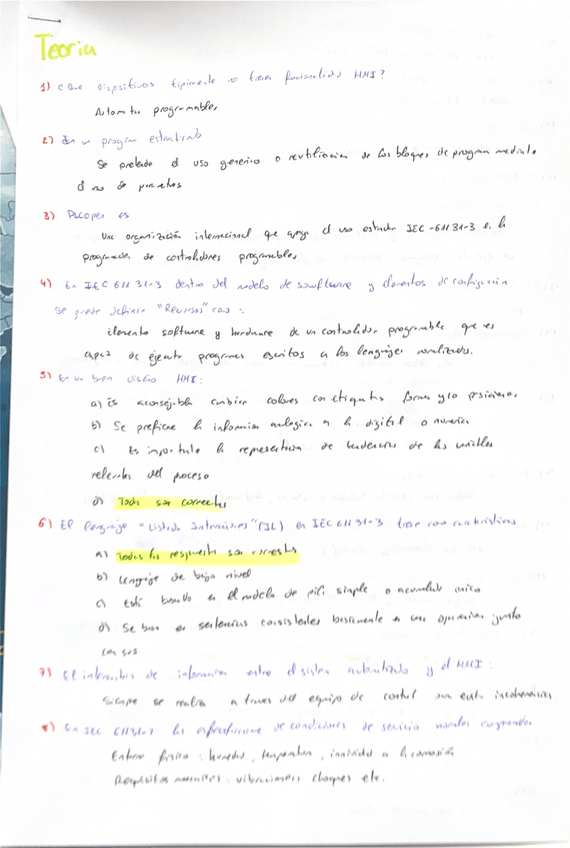 Teoria
1) ¿Que dispositivos tipicamente no tienen funcionalidad HMI?
Automatas programables.
2) En un program estructurado
Se pretende el uso generico o reutilización de los bloques de program mediante
el uso de parametros
3) PLCopen es
Una organización internacional que apoya el uso estandar IEC-61131-3 en la
programación de controladores programables.
4) En IEC 61131-3 dentro del modelo de software y elementos de configuración
se puede definir "Recursos" como:
elemento software y hardware de un controlador programable que es
capaz de ejecutar programas escritos a los lenguajes normalizados.
5) En un buen diseño HMI:
a) es aconsejable combinar colores con etiquetas formas y/o posiciones.
b) Se prefiere la información analogica a la digital o numerica
c) Es importante la representacion de tendencias de las variables
relevantes del proceso
d) Todas son correctas
6) El lenguaje "Listado Instrucciones" (IL) en IEC 61131-3 tiene como caracteristicas
a) todas las respuestas son correctas
b) Lenguaje de bajo nivel
c) Está basado en el modelo de pila simple o acumulador unico
d) Se basa en sentencias consistentes basicamente en una operacion junto
con sus
7) El intercambio de informacion entre el sistema automatizado y el HMI:
Siempre se realiza a traves del equipo de control para evitar incoherencias
8) En IEC 61131-2 las especificaciones de condiciones de servicio normales comprenden
Entorno fisico: humedad, temperatura, inmunidad a la corrosión
Requisitos mecanicos: vibraciones, choques etc.